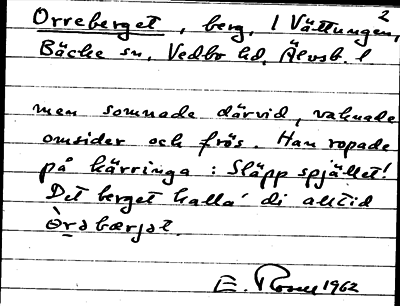 2
Orreberget, berg, 1 Vättungen,
Bäcke sn, Vedbo hd, Älvsb. l
men somnade därvid, vaknade
omsider och frös. Han ropade
på kärringa: Släpp spjället!
Det berget kalla' di alltid
Òrəbærjət.
E. Rosell 1962